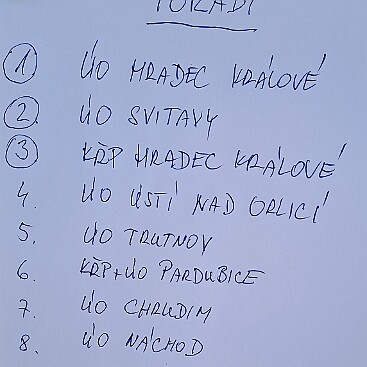 POŘADÍ
1 ÚO HRADEC KRÁLOVÉ
2 ÚO SVITAVY
3 KŘP HRADEC KRÁLOVÉ
4. ÚO ÚSTÍ NAD ORLICÍ
5. ÚO TRUTNOV
6. KŘP+ÚO PARDUBICE
7. ÚO CHRUDIM
8. ÚO NÁCHOD